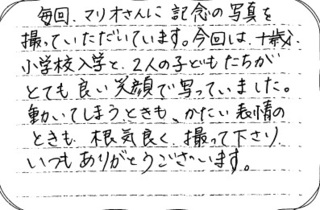 毎回、マリオさんに記念の写真を
撮っていただいています。今回は、十歳、
小学校入学と、2人の子どもたちが
とても良い笑顔で写っていました。
動いてしまうときも、かたい表情の
ときも、根気良く、撮って下さり、
いつもありがとうございます。